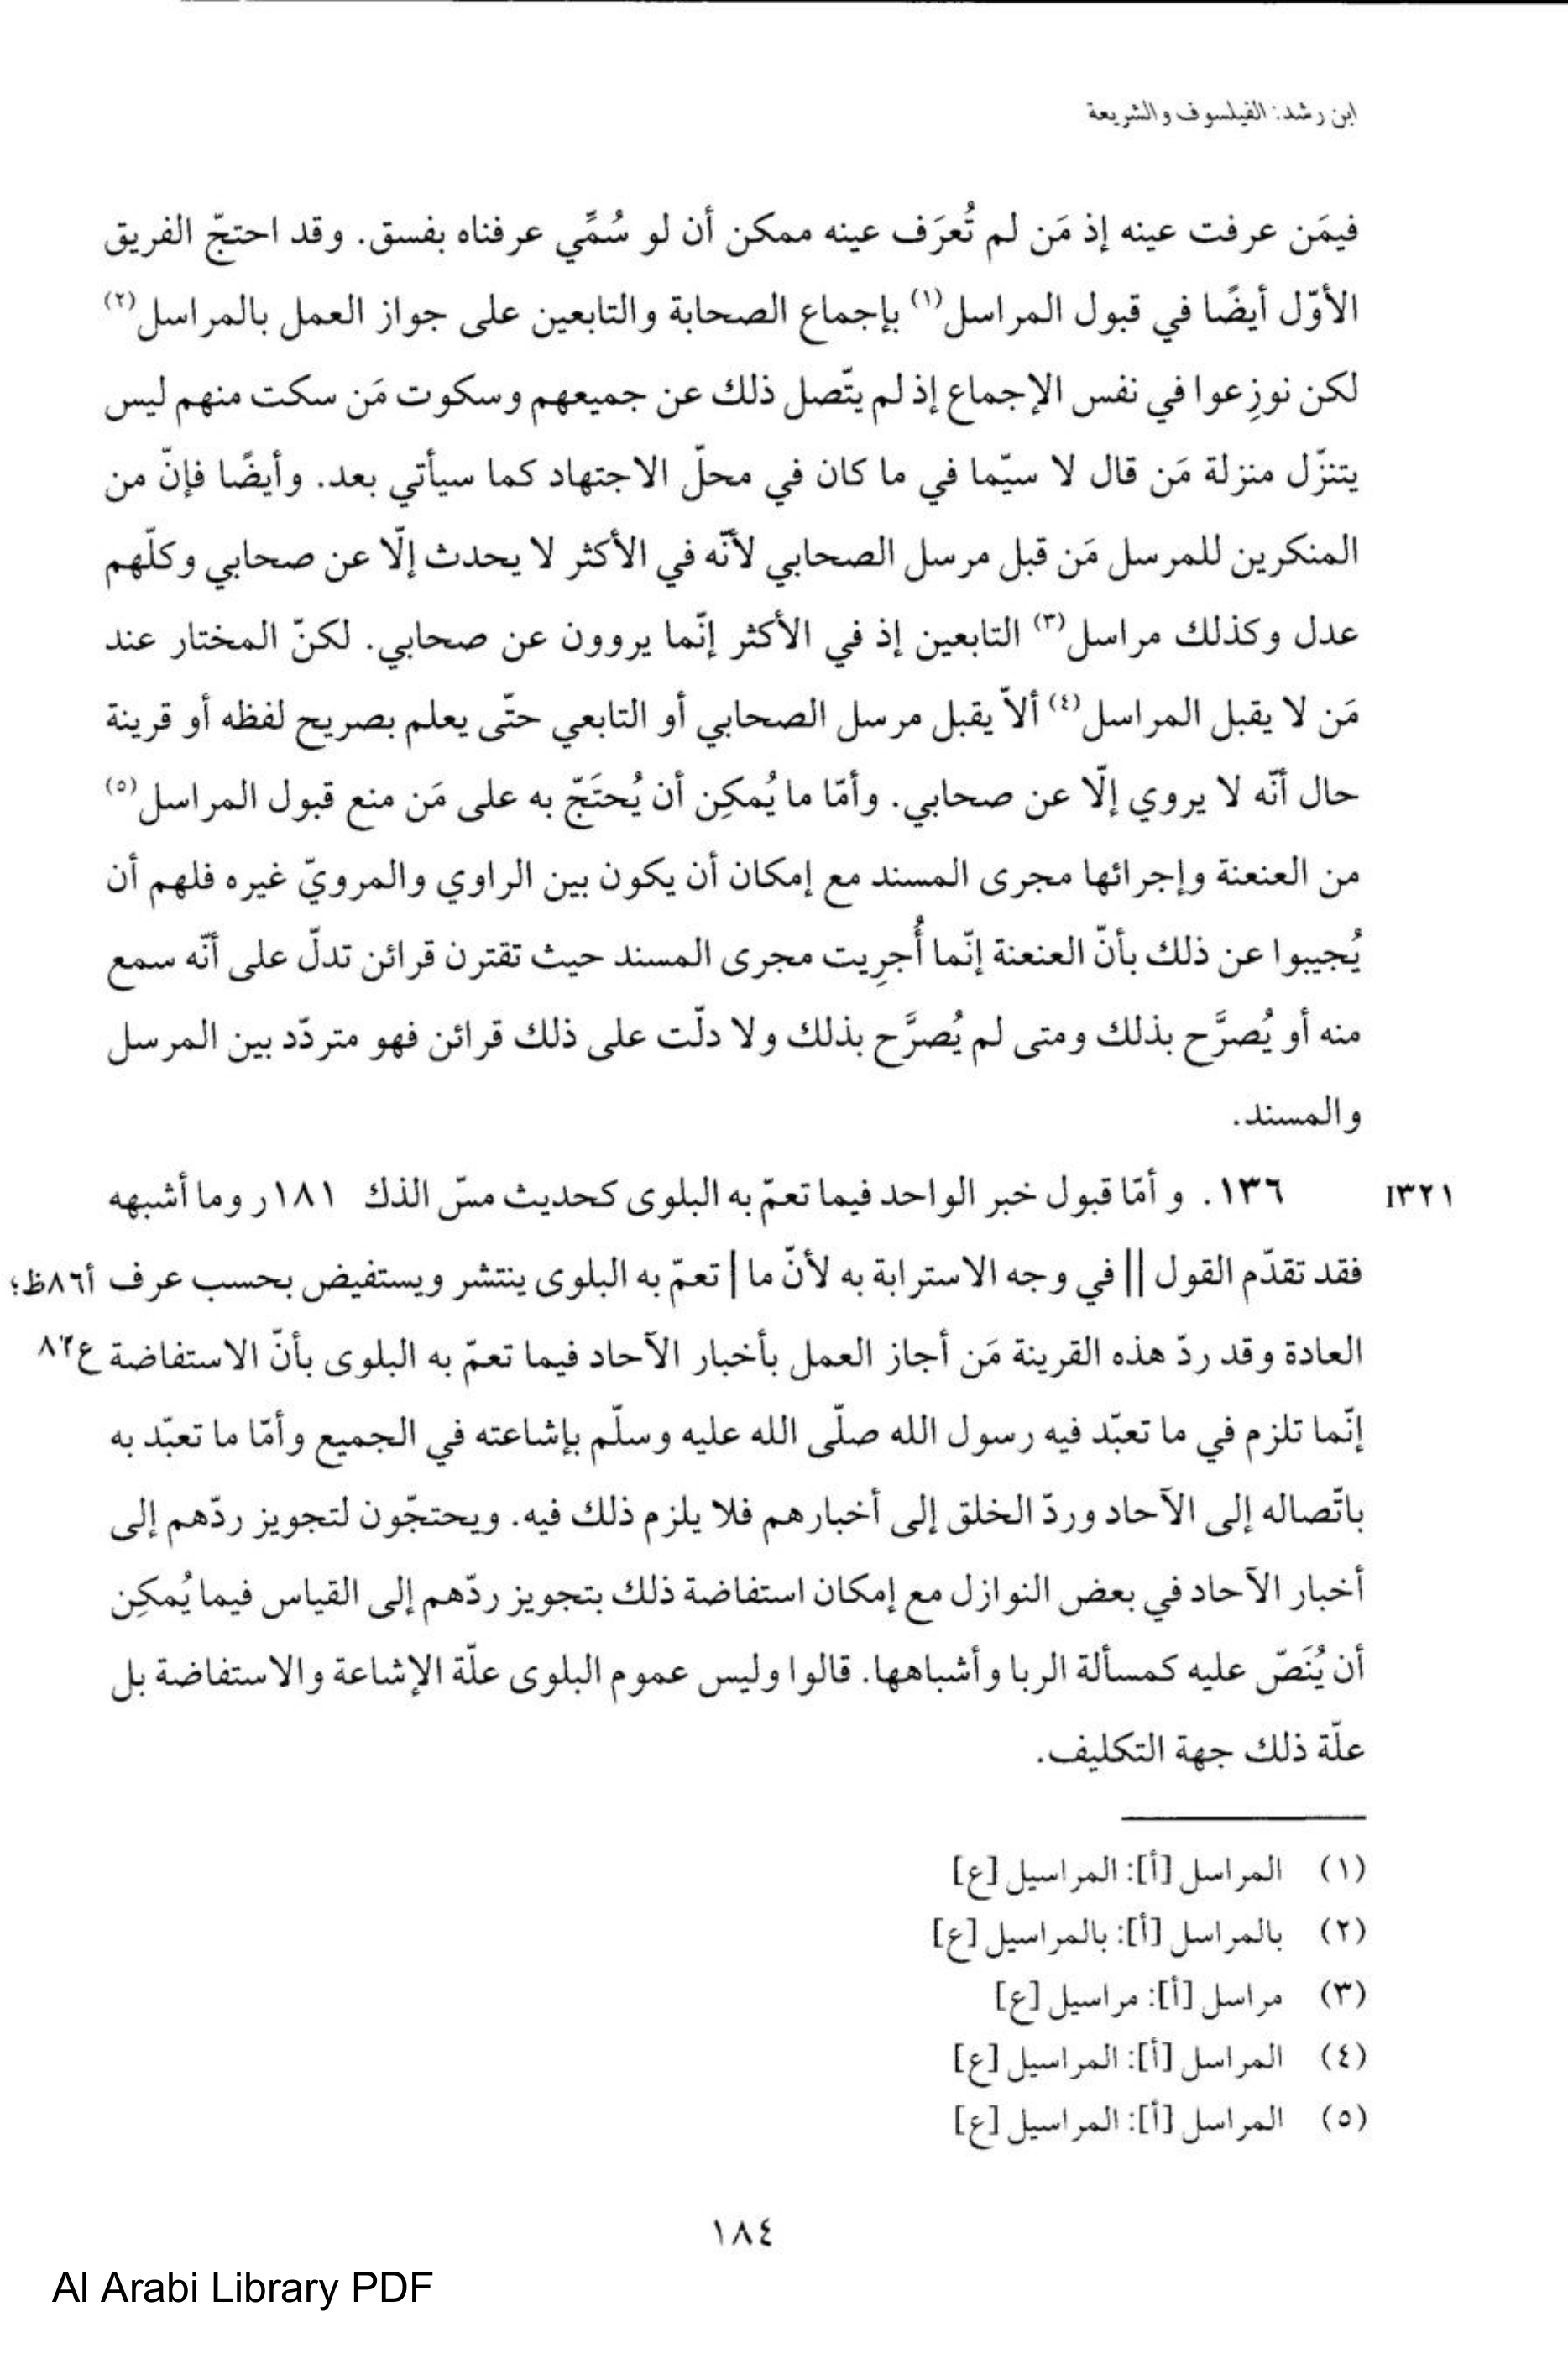 ابن رشد: الفيلسوف والشريعة
فيمَن عرفت عينه إذ مَن لم تُعرَف عينه ممكن أن لو سُمِّي عرفناه بفسق. وقد احتجّ الفريق
الأوّل أيضًا في قبول المراسل(١) بإجماع الصحابة والتابعين على جواز العمل بالمراسل(٢)
لكن نوزِعوا في نفس الإجماع إذ لم يتّصل ذلك عن جميعهم وسكوت مَن سكت منهم ليس
يتنزّل منزلة مَن قال لا سيّما في ما كان في محلّ الاجتهاد كما سيأتي بعد. وأيضًا فإنّ من
المنكرين للمرسل مَن قبل مرسل الصحابي لأنّه في الأكثر لا يحدث إلّا عن صحابي وكلّهم
عدل وكذلك مراسل(٣) التابعين إذ في الأكثر إنّما يروون عن صحابي. لكنّ المختار عند
مَن لا يقبل المراسل(٤) ألاّ يقبل مرسل الصحابي أو التابعي حتّى يعلم بصريح لفظه أو قرينة
حال أنّه لا يروي إلّا عن صحابي. وأمّا ما يُمكِن أن يُحتَجّ به على مَن منع قبول المراسل(٥)
من العنعنة وإجرائها مجرى المسند مع إمكان أن يكون بين الراوي والمرويّ غيره فلهم أن
يُجيبوا عن ذلك بأنّ العنعنة إنّما أُجرِيت مجرى المسند حيث تقترن قرائن تدلّ على أنّه سمع
منه أو يُصرَّح بذلك ومتى لم يُصرَّح بذلك ولا دلّت على ذلك قرائن فهو متردّد بين المرسل
والمسند.
I٣٢١ ١٣٦. و أمّا قبول خبر الواحد فيما تعمّ به البلوى كحديث مسّ الذك ١٨١ر وما أشبهه
فقد تقدّم القول || في وجه الاسترابة به لأنّ ما | تعمّ به البلوى ينتشر ويستفيض بحسب عرف أ٨٦ظ؛
العادة وقد ردّ هذه القرينة مَن أجاز العمل بأخبار الآحاد فيما تعمّ به البلوى بأنّ الاستفاضة
إنّما تلزم في ما تعبّد فيه رسول الله صلّى الله عليه وسلّم بإشاعته في الجميع وأمّا ما تعبّد به
باتّصاله إلى الآحاد وردّ الخلق إلى أخبارهم فلا يلزم ذلك فيه. ويحتجّون لتجويز ردّهم إلى
أخبار الآحاد في بعض النوازل مع إمكان استفاضة ذلك بتجويز ردّهم إلى القياس فيما يُمكِن
أن يُنَصّ عليه كمسألة الربا وأشباهها. قالوا وليس عموم البلوى علّة الإشاعة والاستفاضة بل
علّة ذلك جهة التكليف.
(١) المراسل [أ]: المراسيل [ع]
(٢) بالمراسل [أ]: بالمراسيل [ع]
(٣) مراسل [أ]: مراسيل [ع]
(٤) المراسل [أ]: المراسيل [ع]
(٥) المراسل [أ]: المراسيل [ع]
١٨٤
Al Arabi Library PDF